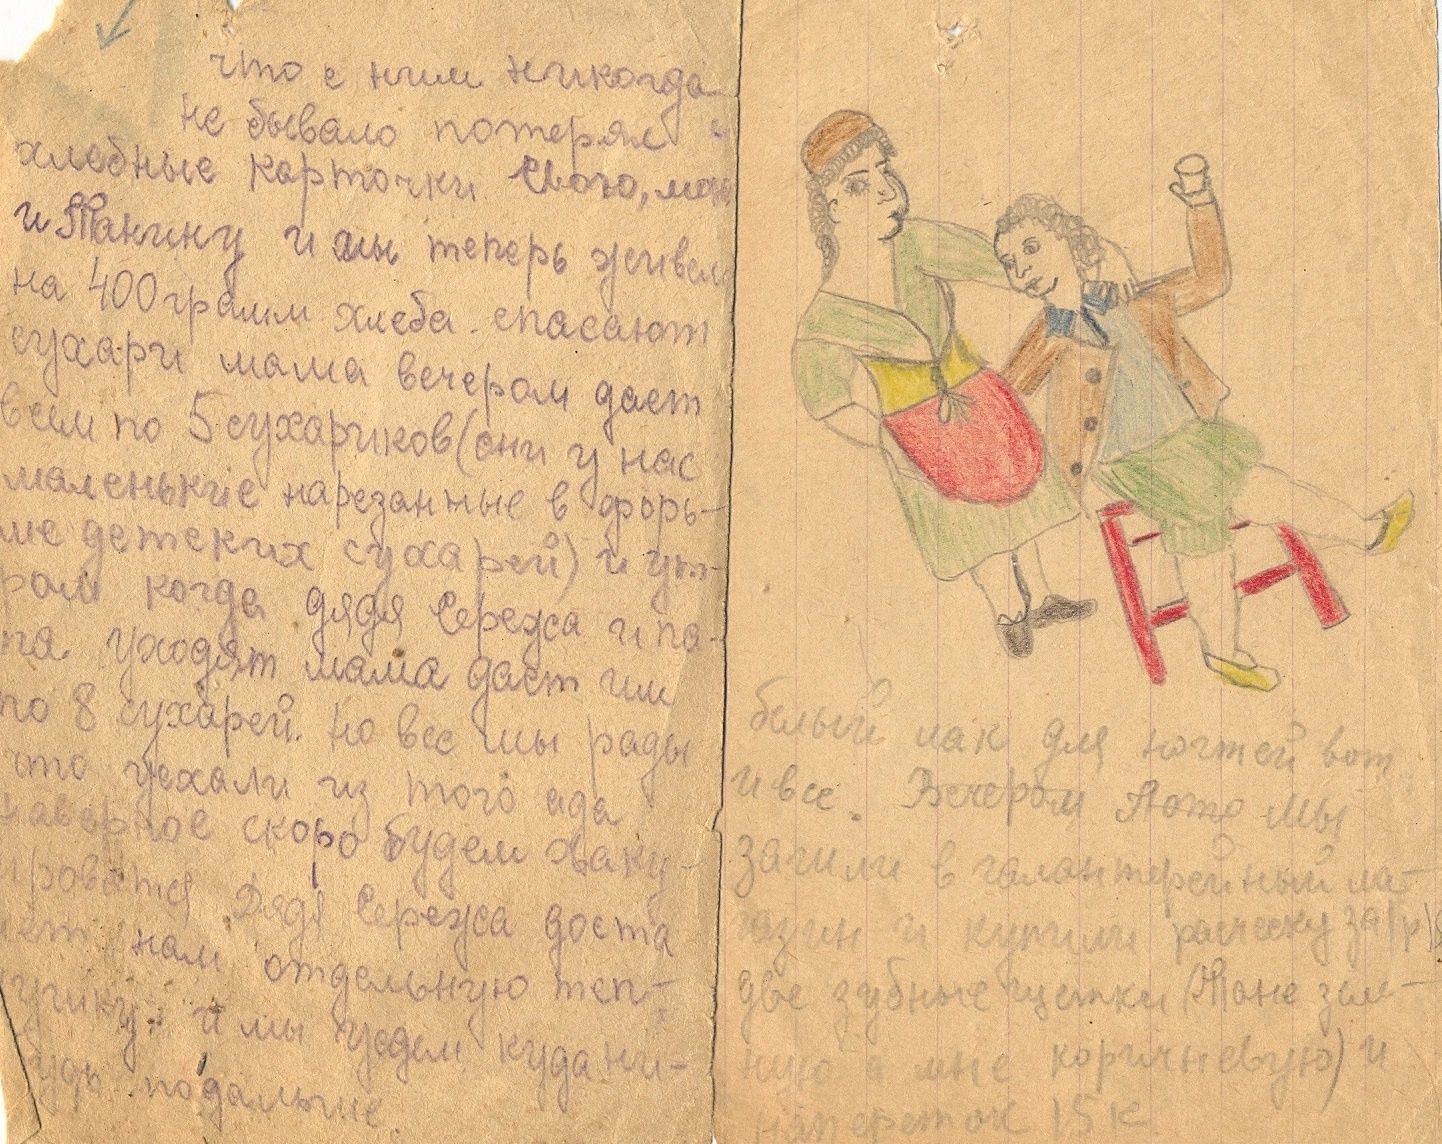 что с ним никогда
не бывало потерял
хлебные карточки свою, мою
и Танину и мы теперь живем
на 400 грамм хлеба. спасают
сухари мама вечером дает
всем по 5 сухариков (они у нас
маленькие нарезанные в форь-
ме детских сухарей) и ут-
ром когда дядя Сережа и па-
па уходят мама дает им
по 8 сухарей. но все мы рады
что уехали из того ада
наверное скоро будем эваку-
ироватся Дядя Сережа доста
ет нам отдельную теп-
лушку. и мы уедем куда ни-
будь подальше.
белый лак для ногтей вот
и все. Вечером Мы
зашли в галантерейный ма-
газин и купили расческу за 1р
две зубные щетки (Тане зеле-
ную а мне коричневую) и
наперсток 15 к